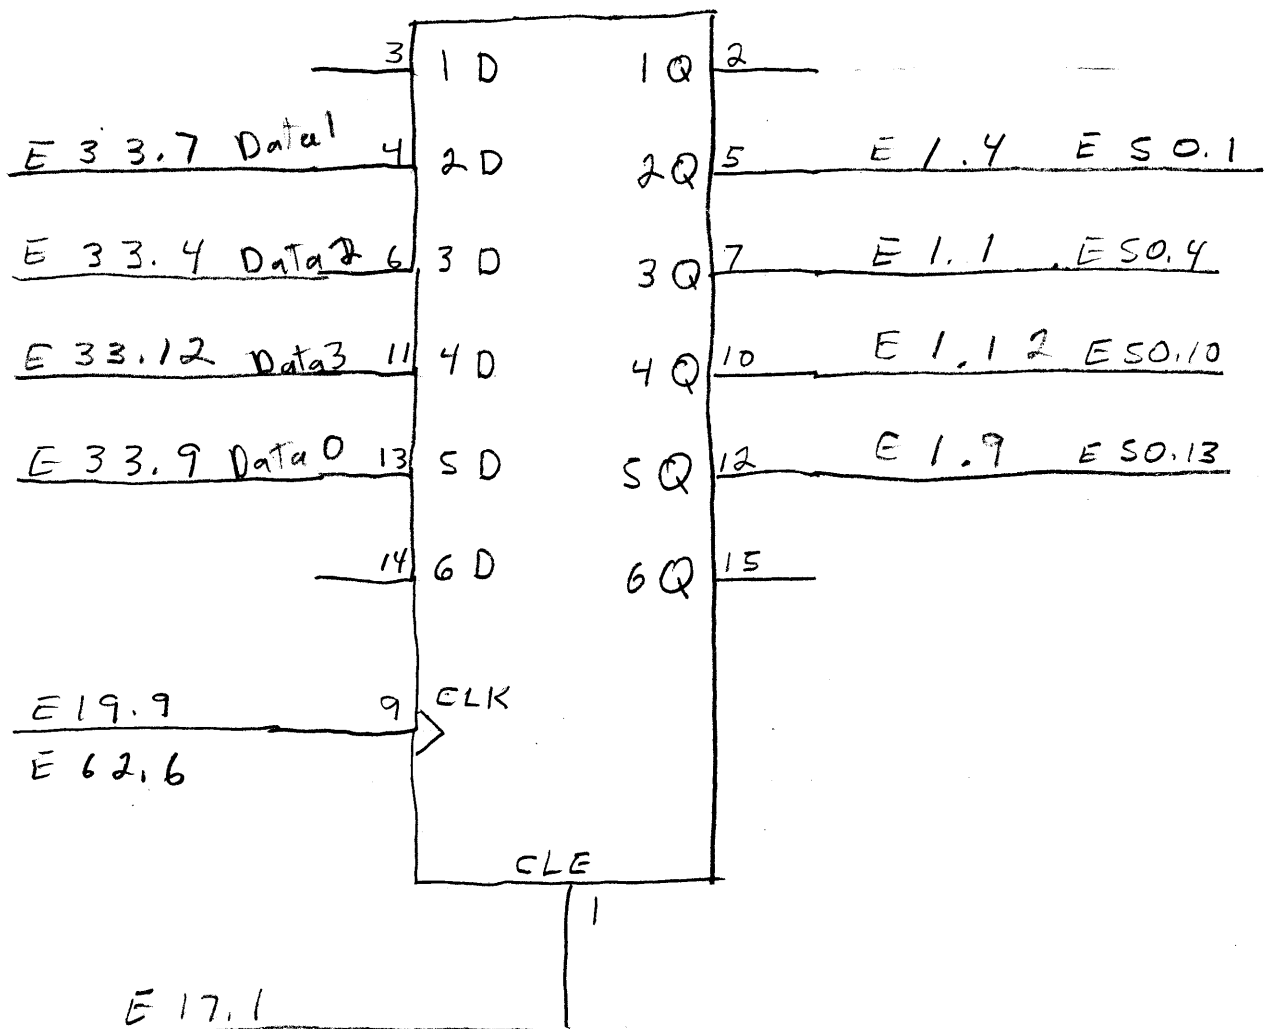 3 1D 1Q 2
E 33.7 Data1 4 2D 2Q 5 E 1.4 E 50.1
E 33.4 Data2 6 3D 3Q 7 E 1.1 E 50.4
E 33.12 Data3 11 4D 4Q 10 E 1.12 E 50.10
E 33.9 Data0 13 5D 5Q 12 E 1.9 E 50.13
14 6D 6Q 15
E 19.9 9 CLK
E 62.6
CLE
1
E 17.1